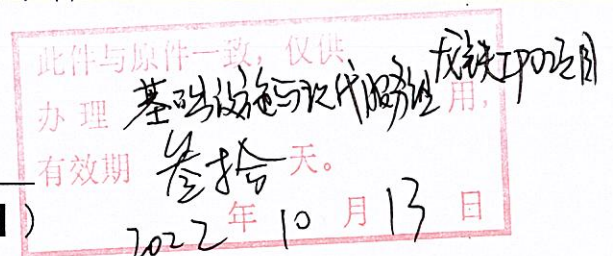 此件与原件一致，仅供
办理 基础设施与现代服务组 成铁IPO项目 用，
有效期 叁拾 天。
2022 年 10 月 13 日
)